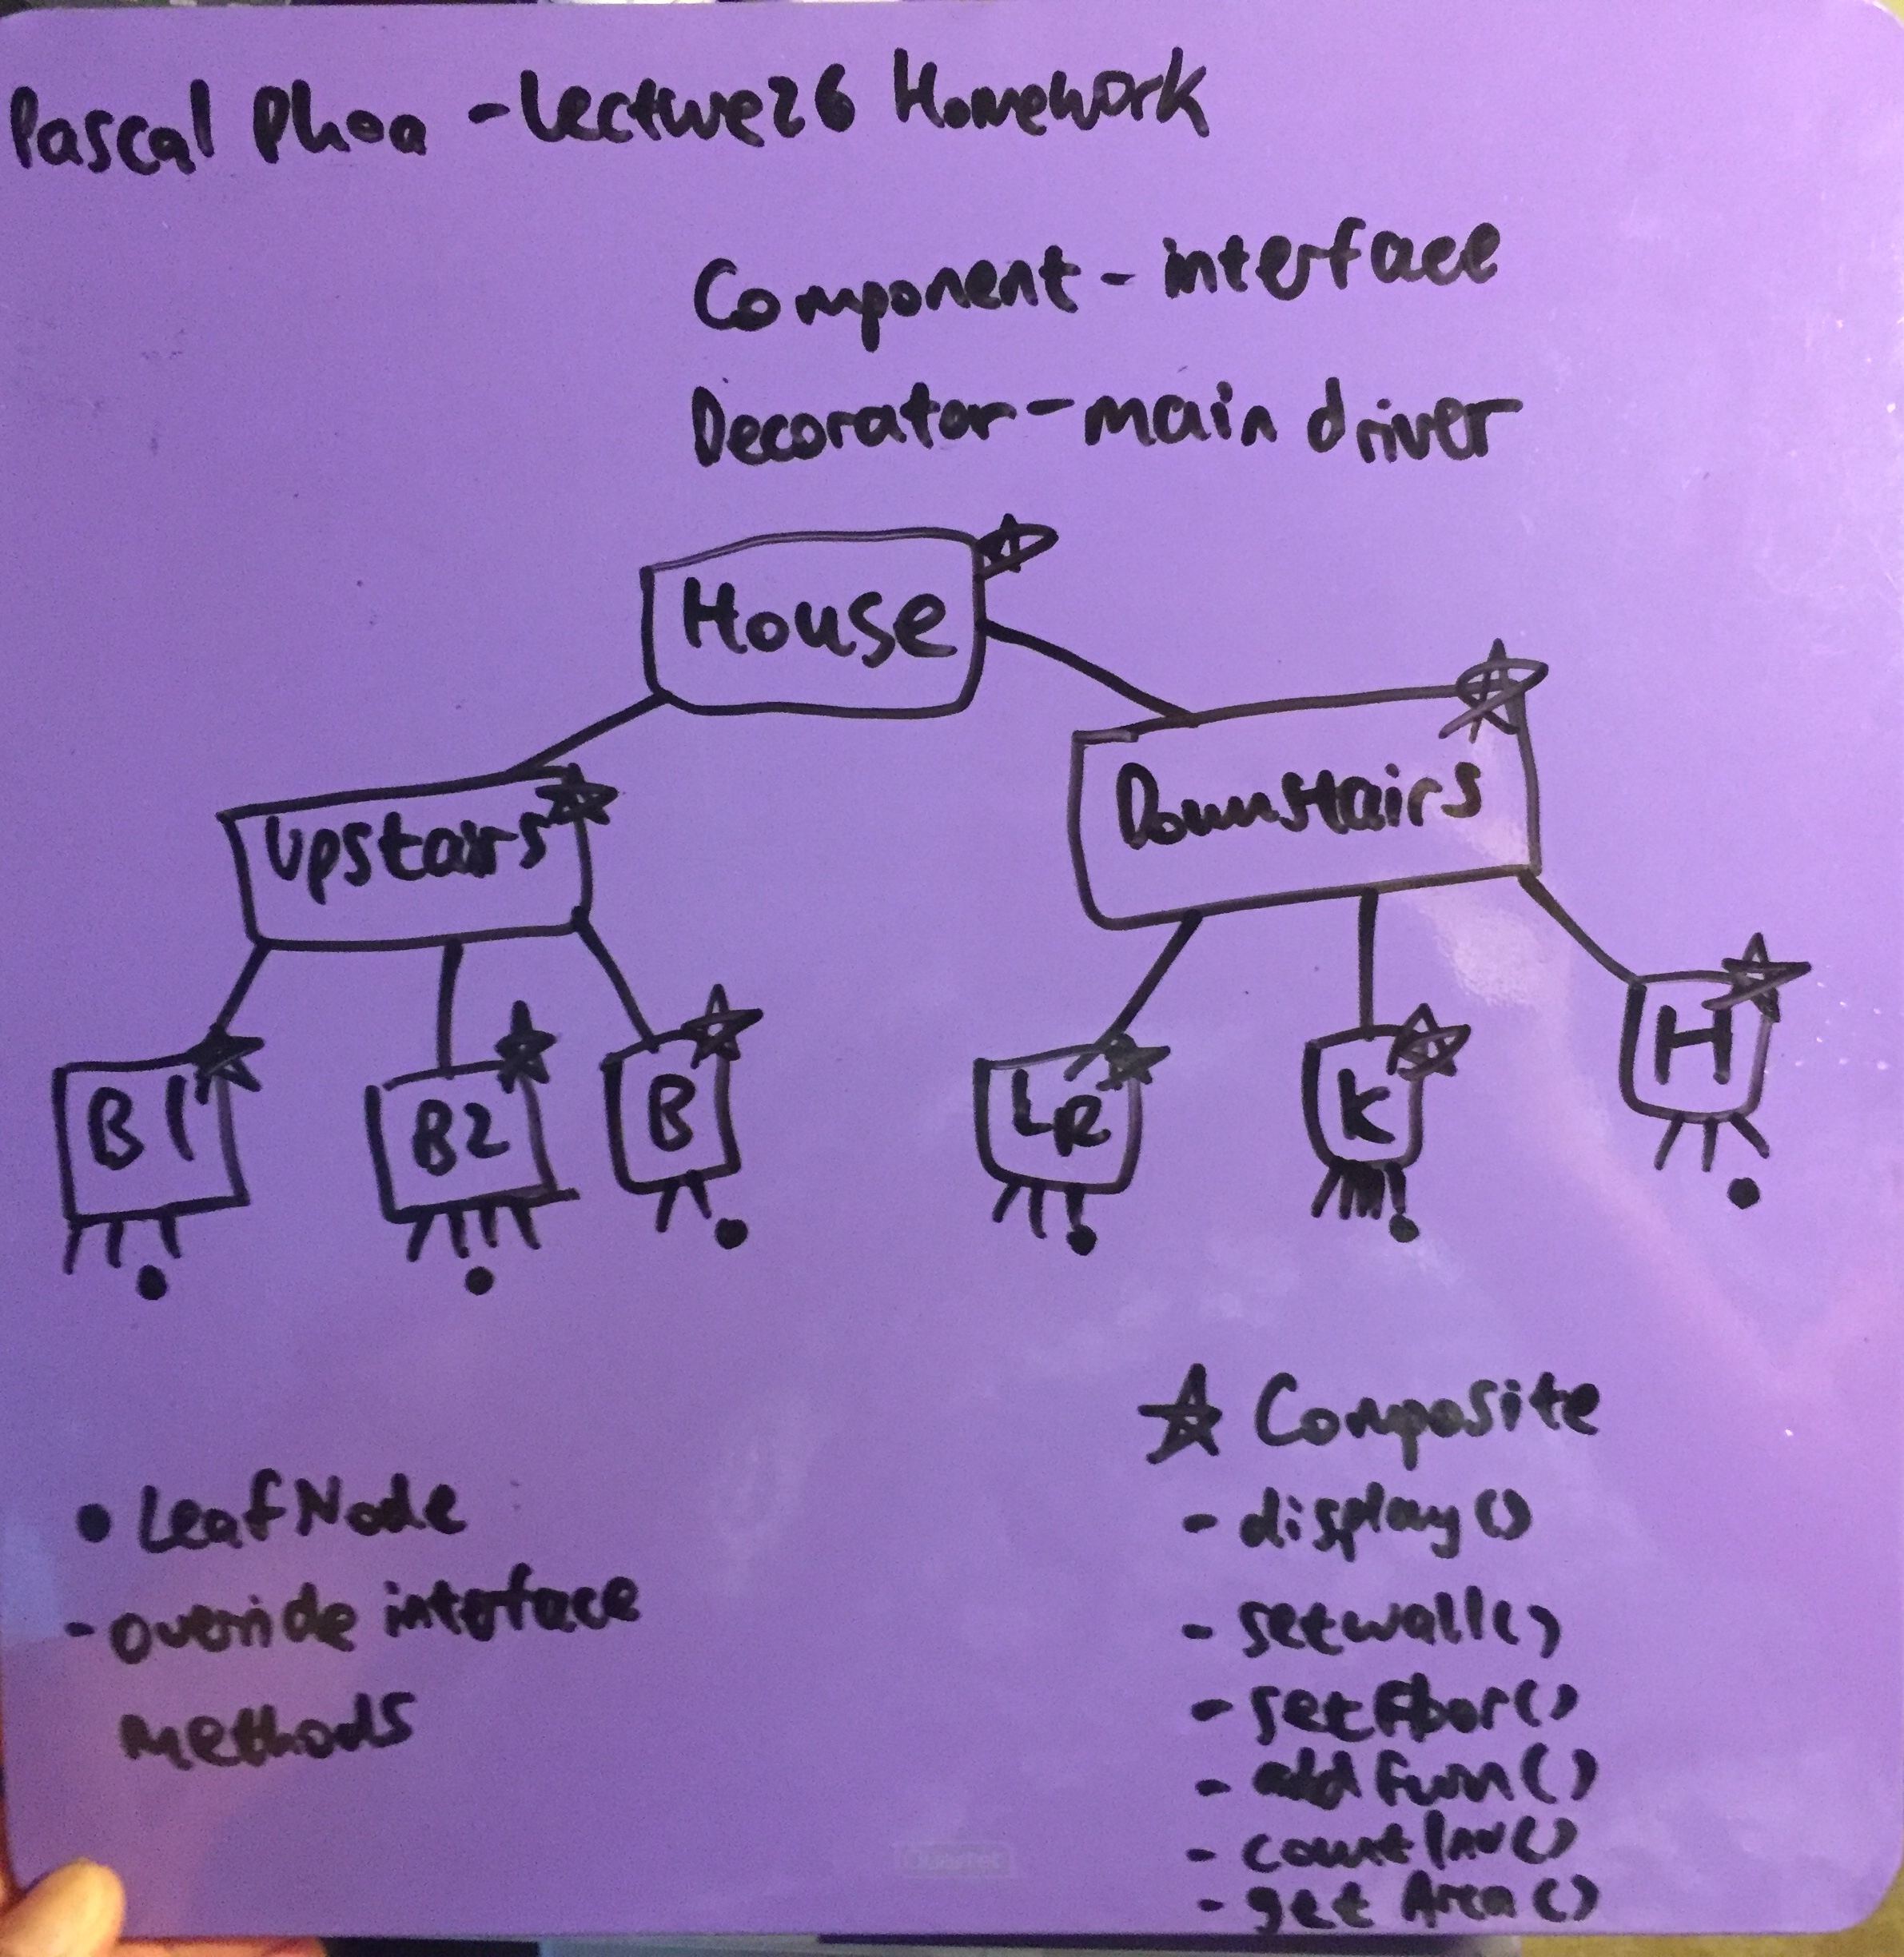 Pascal Phoa - Lecture 26 Homework
Component - interface
Decorator - main driver
House
Upstairs
Downstairs
B1
B2
B
LR
K
H
• Leaf Node
- override interface
Methods
☆ Composite
- display()
- setwall()
- setFloor()
- addFurn()
- countInv()
- getArea()